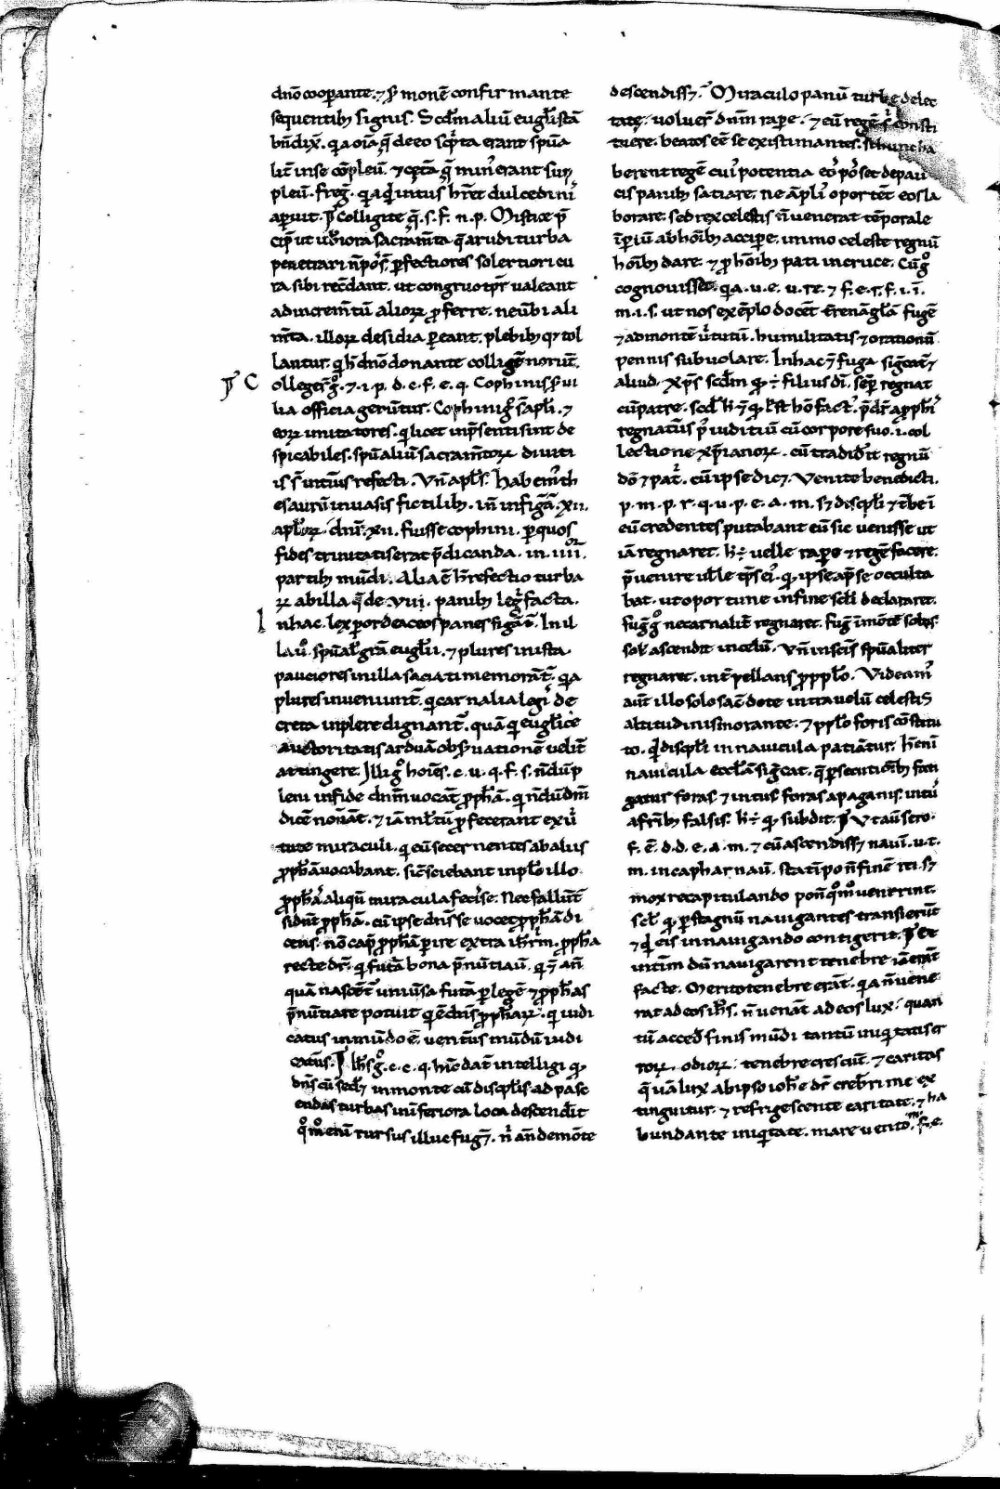 dn̄o cooperante. ⁊ s̄monē confirmante
sequentibꝫ signis. Scd̄m aliū eugl̄istā
bn̄dix̄. q̇a oīa q̄ deeo sc̄pta erant spūa
lit̄ inse cōpleū. ⁊ cet̄a q̄ min̄ erant sup
pleū. freḡ. q̇a q̇ intus h̄ret dulcedinī
apuit. Colligite q̄. s. f. n. p. Mistice p̄
penetrari n̄ pōs̄. pfectiores solertiori cu
ra sibi recōdant. ut congruo tp̄r valeant
ad increm̄tū alioꝝ ꝓferre. neu̅bi ali
m̄ta. illoꝝ desidia pereant. plebibꝫ q̇ tol
lantur. q̇ h̄ dn̄o donante collige norūt.
ollegerḡ. ⁊. i. p. d. c. f. e. q. Cophinis sui
lia officia gerūtur. Cophini ḡ s̄ apl̄i. ⁊
eoꝝ imitatores. q̇ licet inp̄senti sint de
spicabiles. spūaliū sacram̄toꝝ diuiti
is s̄ intius refecti. Vn̄ apl̄s. habem̄ th
esaurū inuasis fictilibꝫ. in̄ infiḡā. xii.
apl̄oꝝ. dn̄r. xii. fuisse cophini. p quos
fides trinitatis erat p̄dicanda. in. iiii.
partibꝫ mūdi. Alia ē h̄ refectio turba
ꝝ ab illa q̄ de. vii. panibꝫ leḡ facta.
nhac. lex p ordeaceos panes figāt̄. In il
la ū. spūal̄ grā eugl̄ii. ⁊ plures inista
pauciores in illa saciati memorāt̄. q̇a
plures inueniunt̄. q̇ carnalia legi᷒ de
creta inplere dignant̄. quā q̇ eugl̄ice
auctoritatis arduā obs̄uationē velīt
attingere. Illi ḡ hoīes. c. u. q. f. s. n̄dū p
leni in fide dn̄m vocāt ꝓph̄ā. q̇ n̄dū dm̄
dicē nouāt. ⁊ iā ml̄tū ꝓfecerant ex ui
tute miraculi. q̇ eū secernentes ab aliis
ꝓph̄ā vocabant. sic̄ sciebant inpl̄o illo
ꝓph̄ā aliqn̄ miracula fecisse. Nec fallunt̄
sidn̄t ꝓph̄ā. cū ipse dn̄s se vocet ꝓph̄ā di
cens. nō cap̄ ꝓph̄ā pire extra ihrl̄m. ꝓph̄a
recte dr̄. q̇ futā bona p̄nūtiaū. q̇ ⁊ an̄
quā nascēt̄ uniūsa futā p legē ⁊ ꝓph̄as
p̄nūtiare potuit q̇ ē dn̄s ꝓph̄aꝝ. q̇ iudi
catus in mūdo ē. ventūs mūdū iudi
catus. Ih̄s ḡ. c. e. q. hic̄ dat̄ intelligi q̇.
dn̄s cū sed̄ in monte cū discipl̄is ad pasc
endas turbas in inferiora loca descendit
q̊m̊ enī rursus illuc fuḡ. n̄ an̄ demōte
descendiss⁊. Miraculo panū turbe delec
tate. voluer̄ dn̄m rape. ⁊ eū regē s̄ consti
tuere. beatos eē se existimantes. si hunc ha
berent regē cui᷒ potentia eo᷒ pos̄set de pau
cis panibꝫ satiare. ne āpli᷒ oportēt eos la
borare. sed rex celestis n̄ venerat tēporale
īpiū ab hoībꝫ accipe. immo celeste regnū
hoībꝫ dare. ⁊ ꝓ hoībꝫ pati in cruce. Cūḡ
cognouisset. q̇a. u. e. u. re. ⁊ f. e. s. f. i. i.
m. i. s. ut nos exēplo docēt t̄rena gl̄a fugē
⁊ ad montē v̄tutū. humilitatis ⁊ orationū
pennis subuolare. In hac ⁊ fuga sig̅cat̄
aliud. Xp̄s scd̄m q̇ ÷ filius dī. semp̄ regnat
cū patre. scd̄ h̄ ⁊ q̇ ē hō fact᷒. p̄dr̄ a ꝓph̄i᷒
regnatūs p᷒ iuditiū cū corpore suo. i. col
lectione xp̄ianoꝝ. cū tradidit regnū
dō ⁊ pat̄. cū ipse dic⁊. Venite benedicti.
p. m. p. r. q. v. p. c. a. m. s⁊ discipl̄i ⁊ t̄be ī
eū credentes putabant eū sic venisse ut
iā regnaret. h̄ ÷ velle rape ⁊ regē facere.
p̄uenire velle tp̄s ei᷒. q̇ ipse ap̄ se occulta
bat. ut oportune in fine scl̄i declararet.
fug̅ ḡ ne carnalit̄ regnaret. fug̅ ī mōtē solus
sol᷒ ascendit in celū. Vn̄ in scīs spūaliter
regnaret. int̄pellans ꝓ ppl̄o. Videam᷒
aūt illo solo sac̄dote intra uelū celestis
altitudinis morante. ⁊ ppl̄o foris cōstitu
to. q̇d discipl̄i in nauicula patiātur. h̄ enī
nauicula eccl̄am sig̅cat. q̄ psecutionibꝫ fati
gatur foras. ⁊ intus foras a paganis. int᷒
a fr̄ibꝫ falsis. h̄ ÷ q̇ subdit. Vt aū sero.
f. ē. d. d. e. a. m. ⁊ cū ascendiss⁊ nauī. v. t.
m. in caphar naū. statī ꝓ n̄ finē rei. s⁊
mox recapitulando pon̄ q̊m̊ venerint.
scl̄. q̇ p stagnū nauigantes transierūt
⁊ q̇d eis in nauigando contigerit. Et
int̄im dū nauigarent tenebre iā erāt
facte. Merito tenebre erāt. q̇a n̄ uene
rat ad eos ih̄s. n̄ venāt ad eos lux. quan
tū acced̄ finis mūdi tantū iniq̇tatis er
roꝝ. odioꝝ. tenebre crescūt. ⁊ caritas
q̄ uā lux ab ipso ioh̄e dr̄ crebri me ex
tinguitur. ⁊ refrigescente caritate. ⁊ ha
bundante iniq̇tate. mare vento. m̄. f. e.